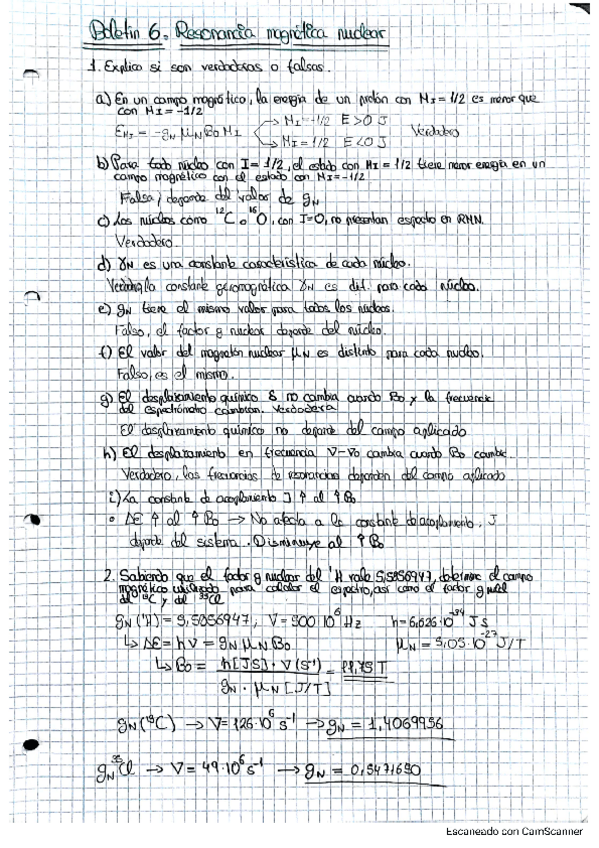 Boletín 6. Resonancia magnética nuclear
1. Explica si son verdaderas o falsas.
a) En un campo magnético, la energía de un protón con MI = 1/2 es menor que
con MI = -1/2
EMI = -gN μN B0 MI → MI = -1/2 E > 0 J Verdadero
→ MI = 1/2 E < 0 J
b) Para todo núcleo con I = 1/2, el estado con MI = 1/2 tiene menor energía en un
campo magnético con el estado con MI = -1/2
Falsa, depende del valor de gN
c) Los núcleos como 12C o 16O, con I=0, no presentan espectro en RMN.
Verdadero.
d) γN es una constante característica de cada núcleo.
la constante giromagnética γN es dif. para cada núcleo.
e) gN tiene el mismo valor para todos los núcleos.
Falso, el factor g nuclear depende del núcleo.
f) El valor del magnetón nuclear μN es distinto para cada nucleo.
Falso, es el mismo.
g) El desplazamiento químico δ no cambia cuando B0 y la frecuencia
del espectrómetro cambian. Verdadera
El desplazamiento químico no depende del campo aplicado
h) El desplazamiento en frecuencia ν-ν0 cambia cuando B0 cambie.
Verdadero, las frecuencias de resonancias dependen del campo aplicado
i) La constante de acoplamiento J ↑ al ↑ B0
• ΔE ↑ al ↑ B0 → No afecta a la constante de acoplamiento, J
depende del sistema. Disminuye al ↑ B0
2. Sabiendo que el factor g nuclear del 1H vale 5,5856947, determine el campo
magnético utilizado para calcular el espectro, así como el factor g nuclear
del 13C y del 35Cl
gN (1H) = 5,5856947, ν = 500 10^6 Hz h = 6,626·10^-34 J s
↳ ΔE = hν = gN μN B0 μN = 5,05·10^-27 J/T
↳ B0 = h[JS] · ν (s^-1) / gN · μN [J/T] = 11,75 T
gN (13C) → ν = 126·10^6 s^-1 → gN = 1,4069956
gN 35Cl → ν = 49·10^6 s^-1 → gN = 0,5471650
Escaneado con CamScanner